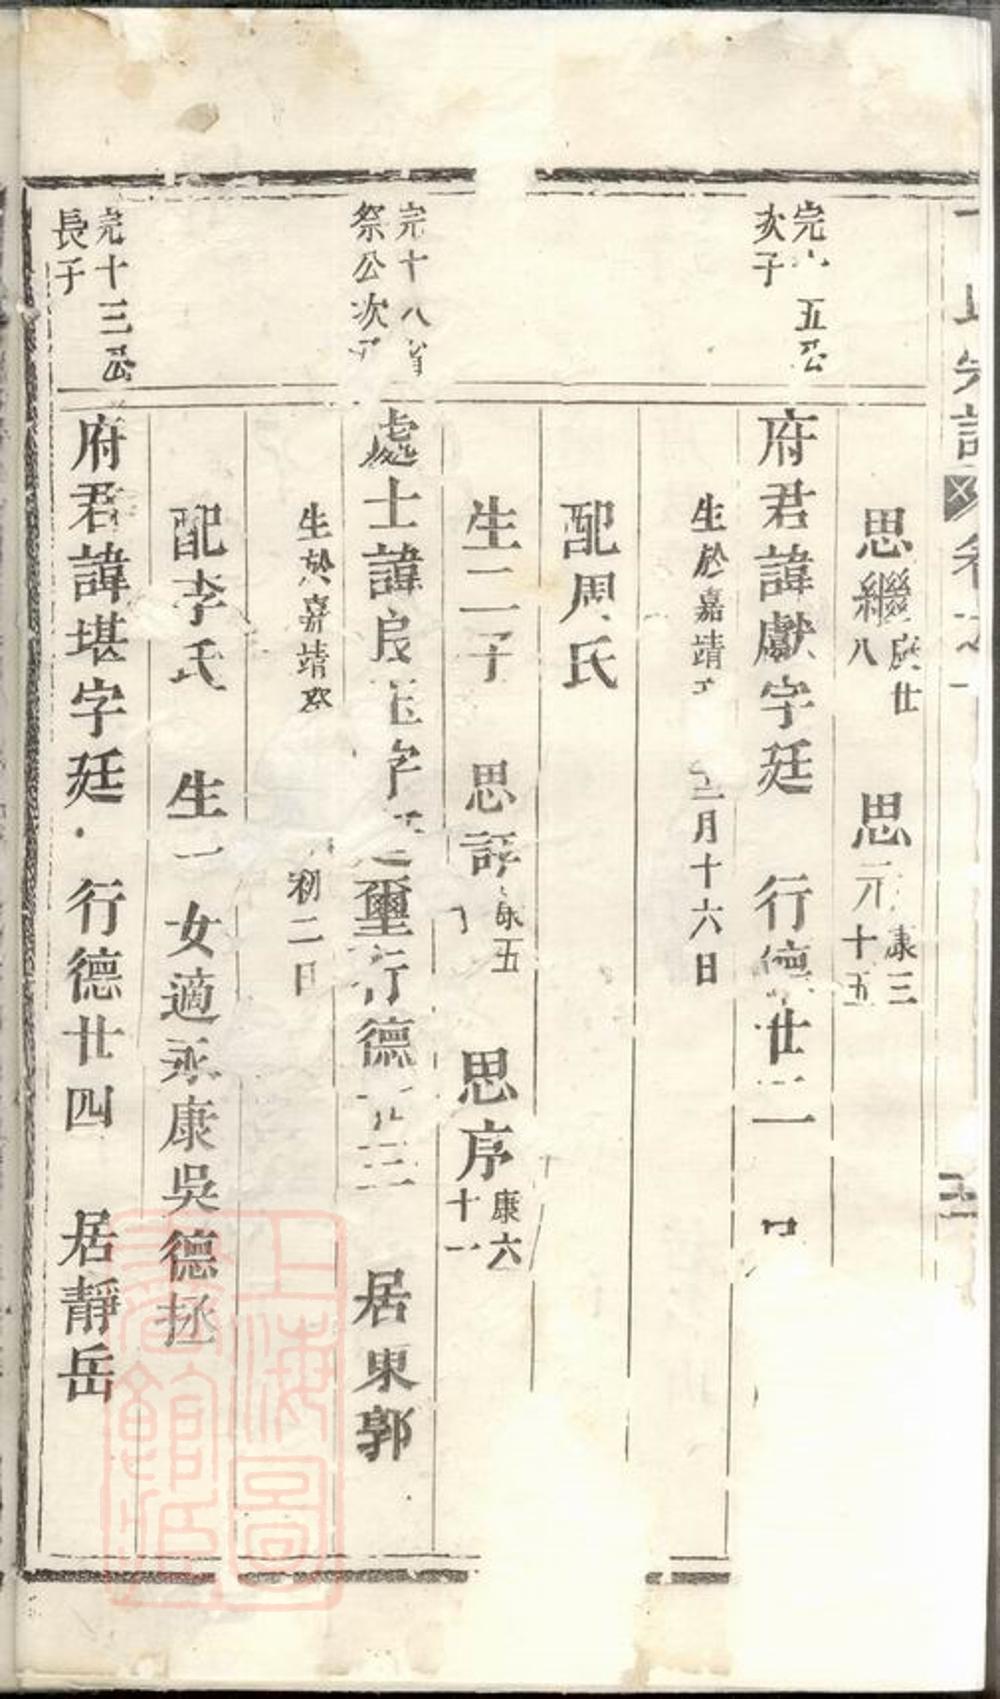 思繼慶廿八 思元康三十五
完 五公次子
府君諱獻字廷 行德廿二
生於嘉靖 三月十六日
配周氏
生二子 思諄康五 思序康六十一
完十八省祭公次子
處士諱良玉字廷璽行德 三 居東郭
生於嘉靖癸 初二日
配李氏 生一女適永康吳德拯
完十三公長子
府君諱堪字廷 行德廿四 居靜岳
上海圖書館藏